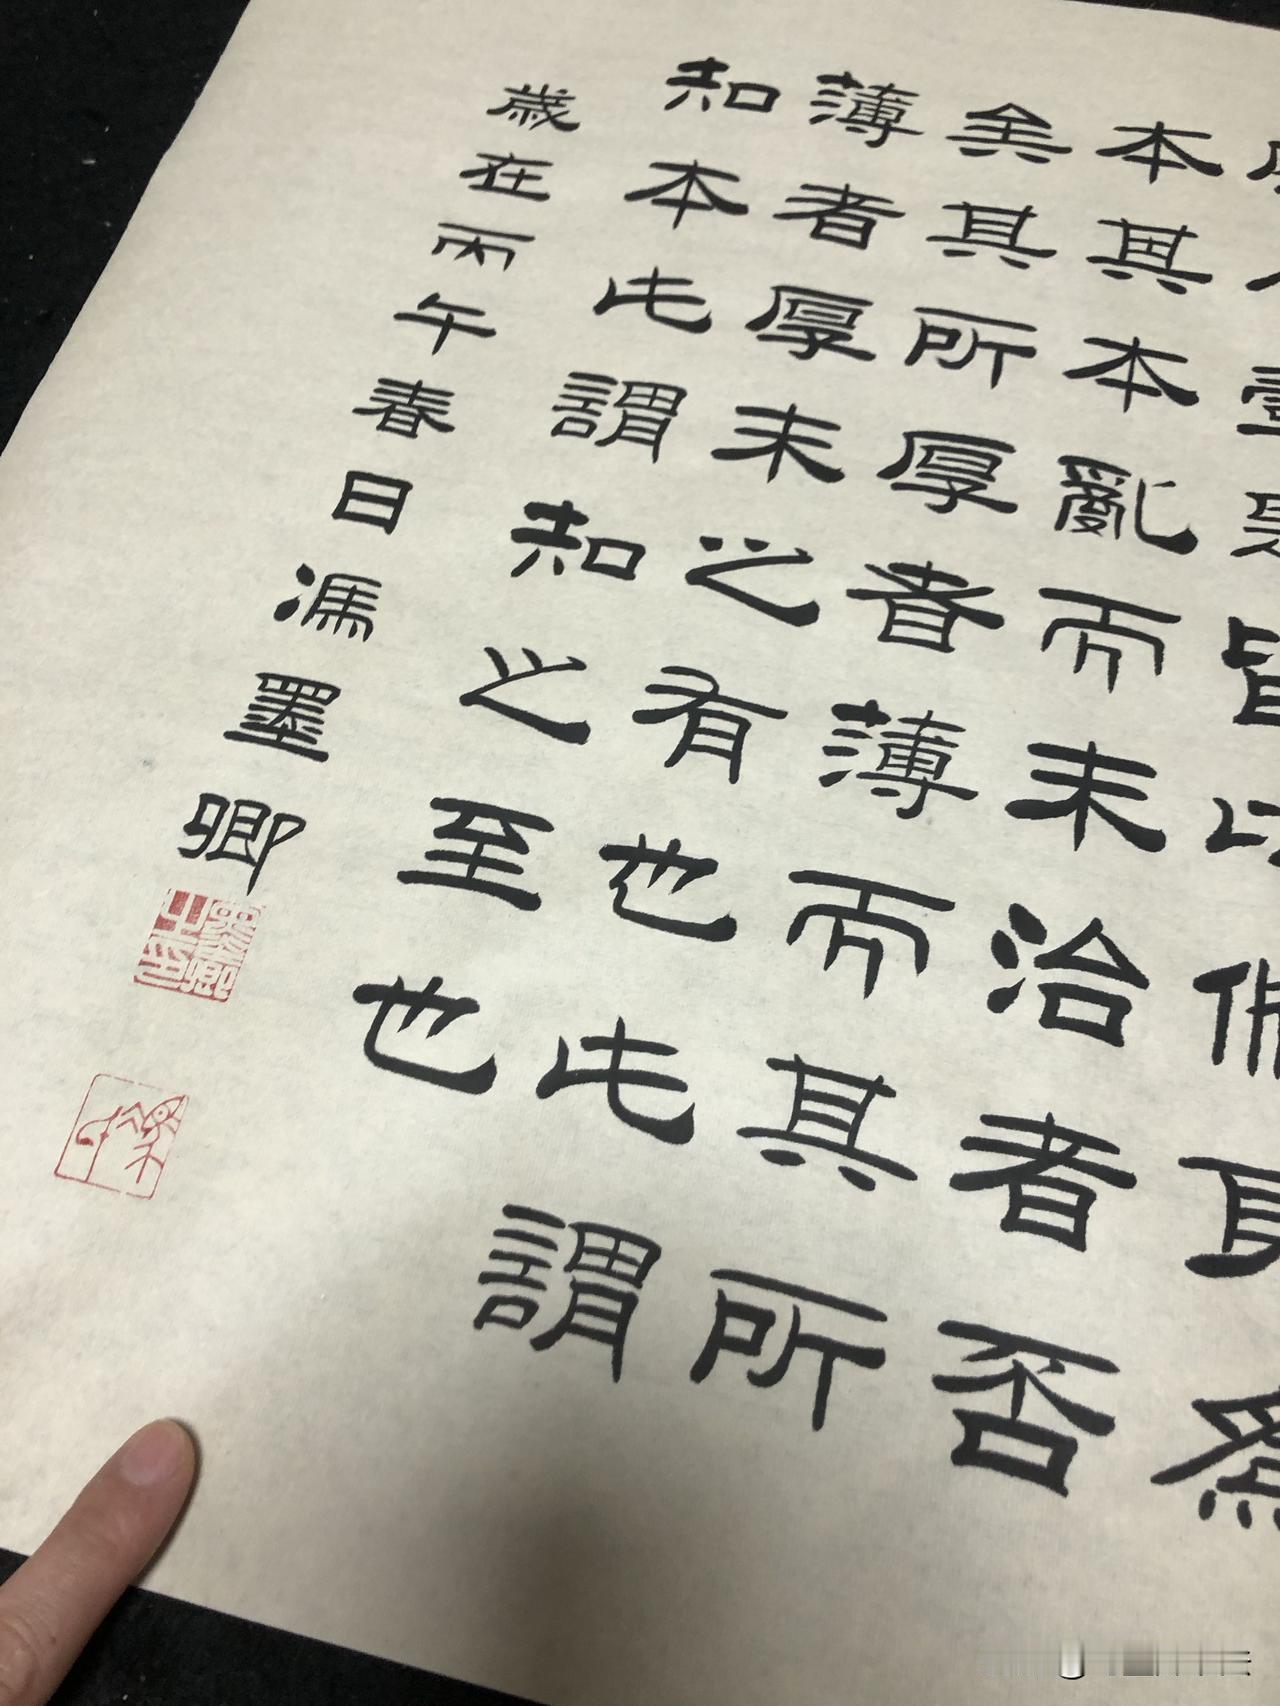 壹是皆以脩身為
本其本亂而末治者否
矣其所厚者薄而其所
薄者厚未之有也此謂
知本此謂知之至也
歲在丙午春日馮墨卿